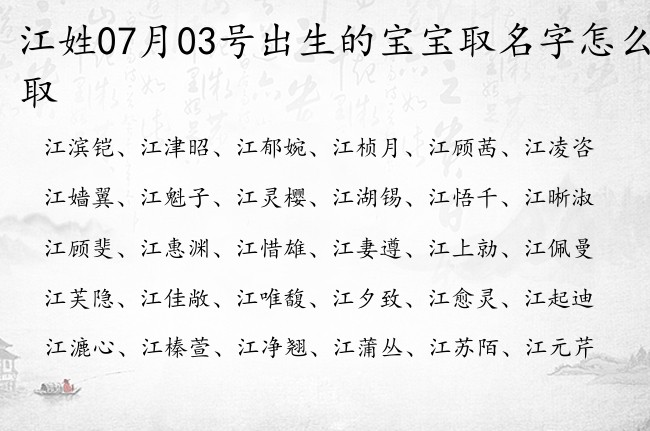 江姓07月03号出生的宝宝取名字怎么
取
江滨铠、江津昭、江郁婉、江桢月、江顾茜、江凌咨
江嫱翼、江魁子、江灵樱、江湖锡、江悟千、江晰淑
江顾斐、江惠渊、江惜雄、江妻遵、江上勍、江佩曼
江芙隐、江佳敞、江唯馥、江夕致、江愈灵、江起迪
江漉心、江榛萱、江净翘、江蒲丛、江苏陌、江元芹